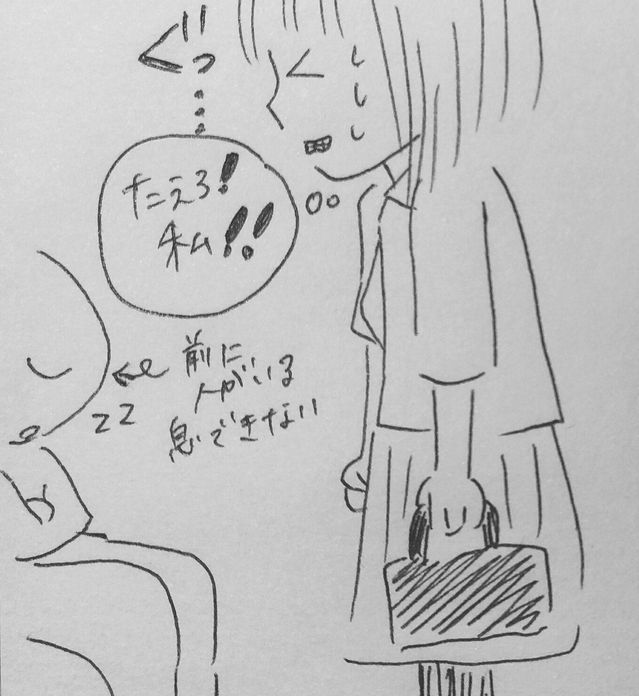 ぐっ…
たえろ!
私!!
zz
前に
人がいる
息できない